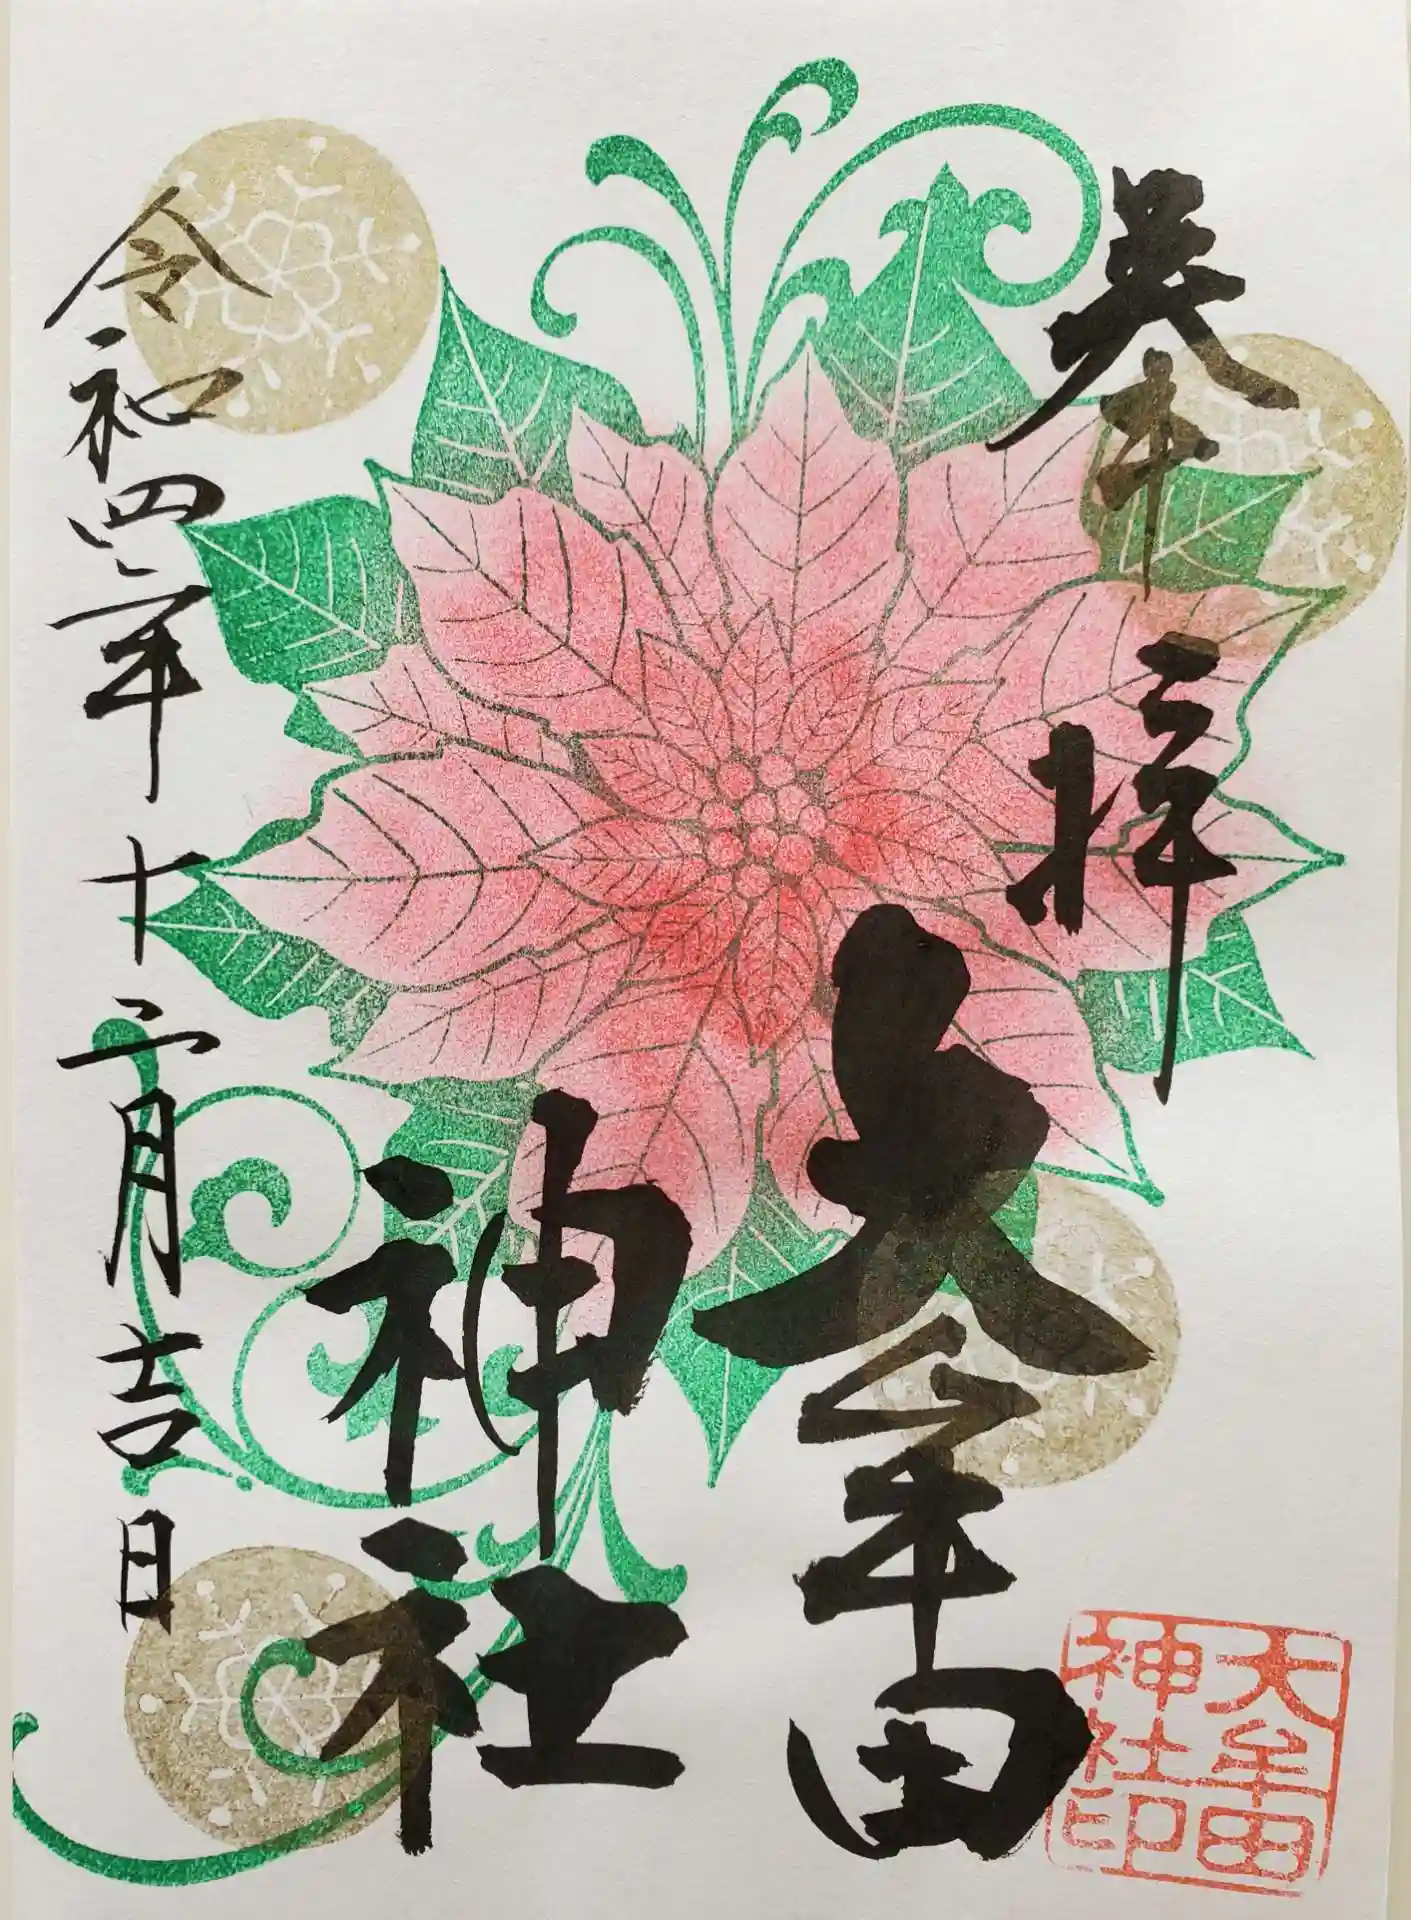 奉拝
大牟田
神社
令和四年十二月吉日
大牟田
神社印